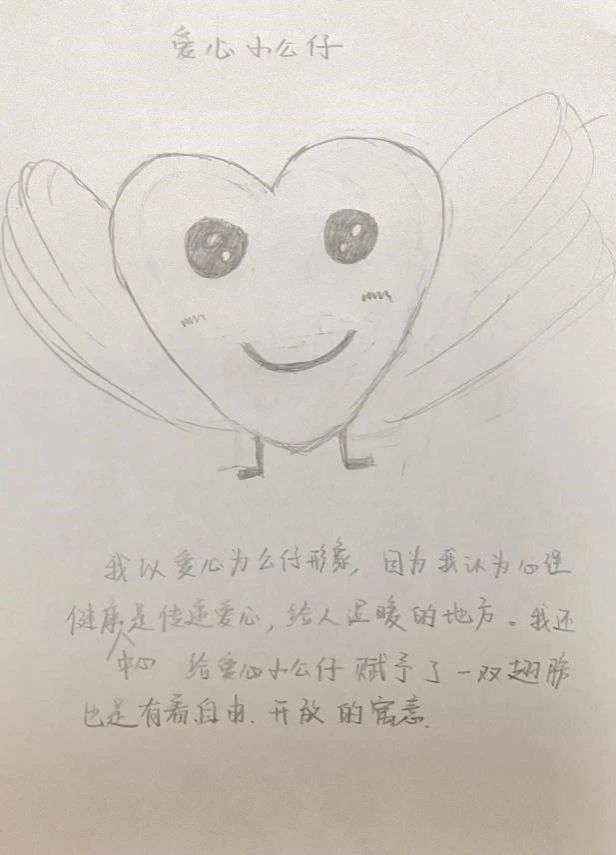 爱心小公仔
我以爱心为公仔形象，因为我认为心理
健康是传递爱心，给人温暖的地方。我还
中心 给爱心小公仔赋予了一双翅膀
也是有着自由、开放的寓意.